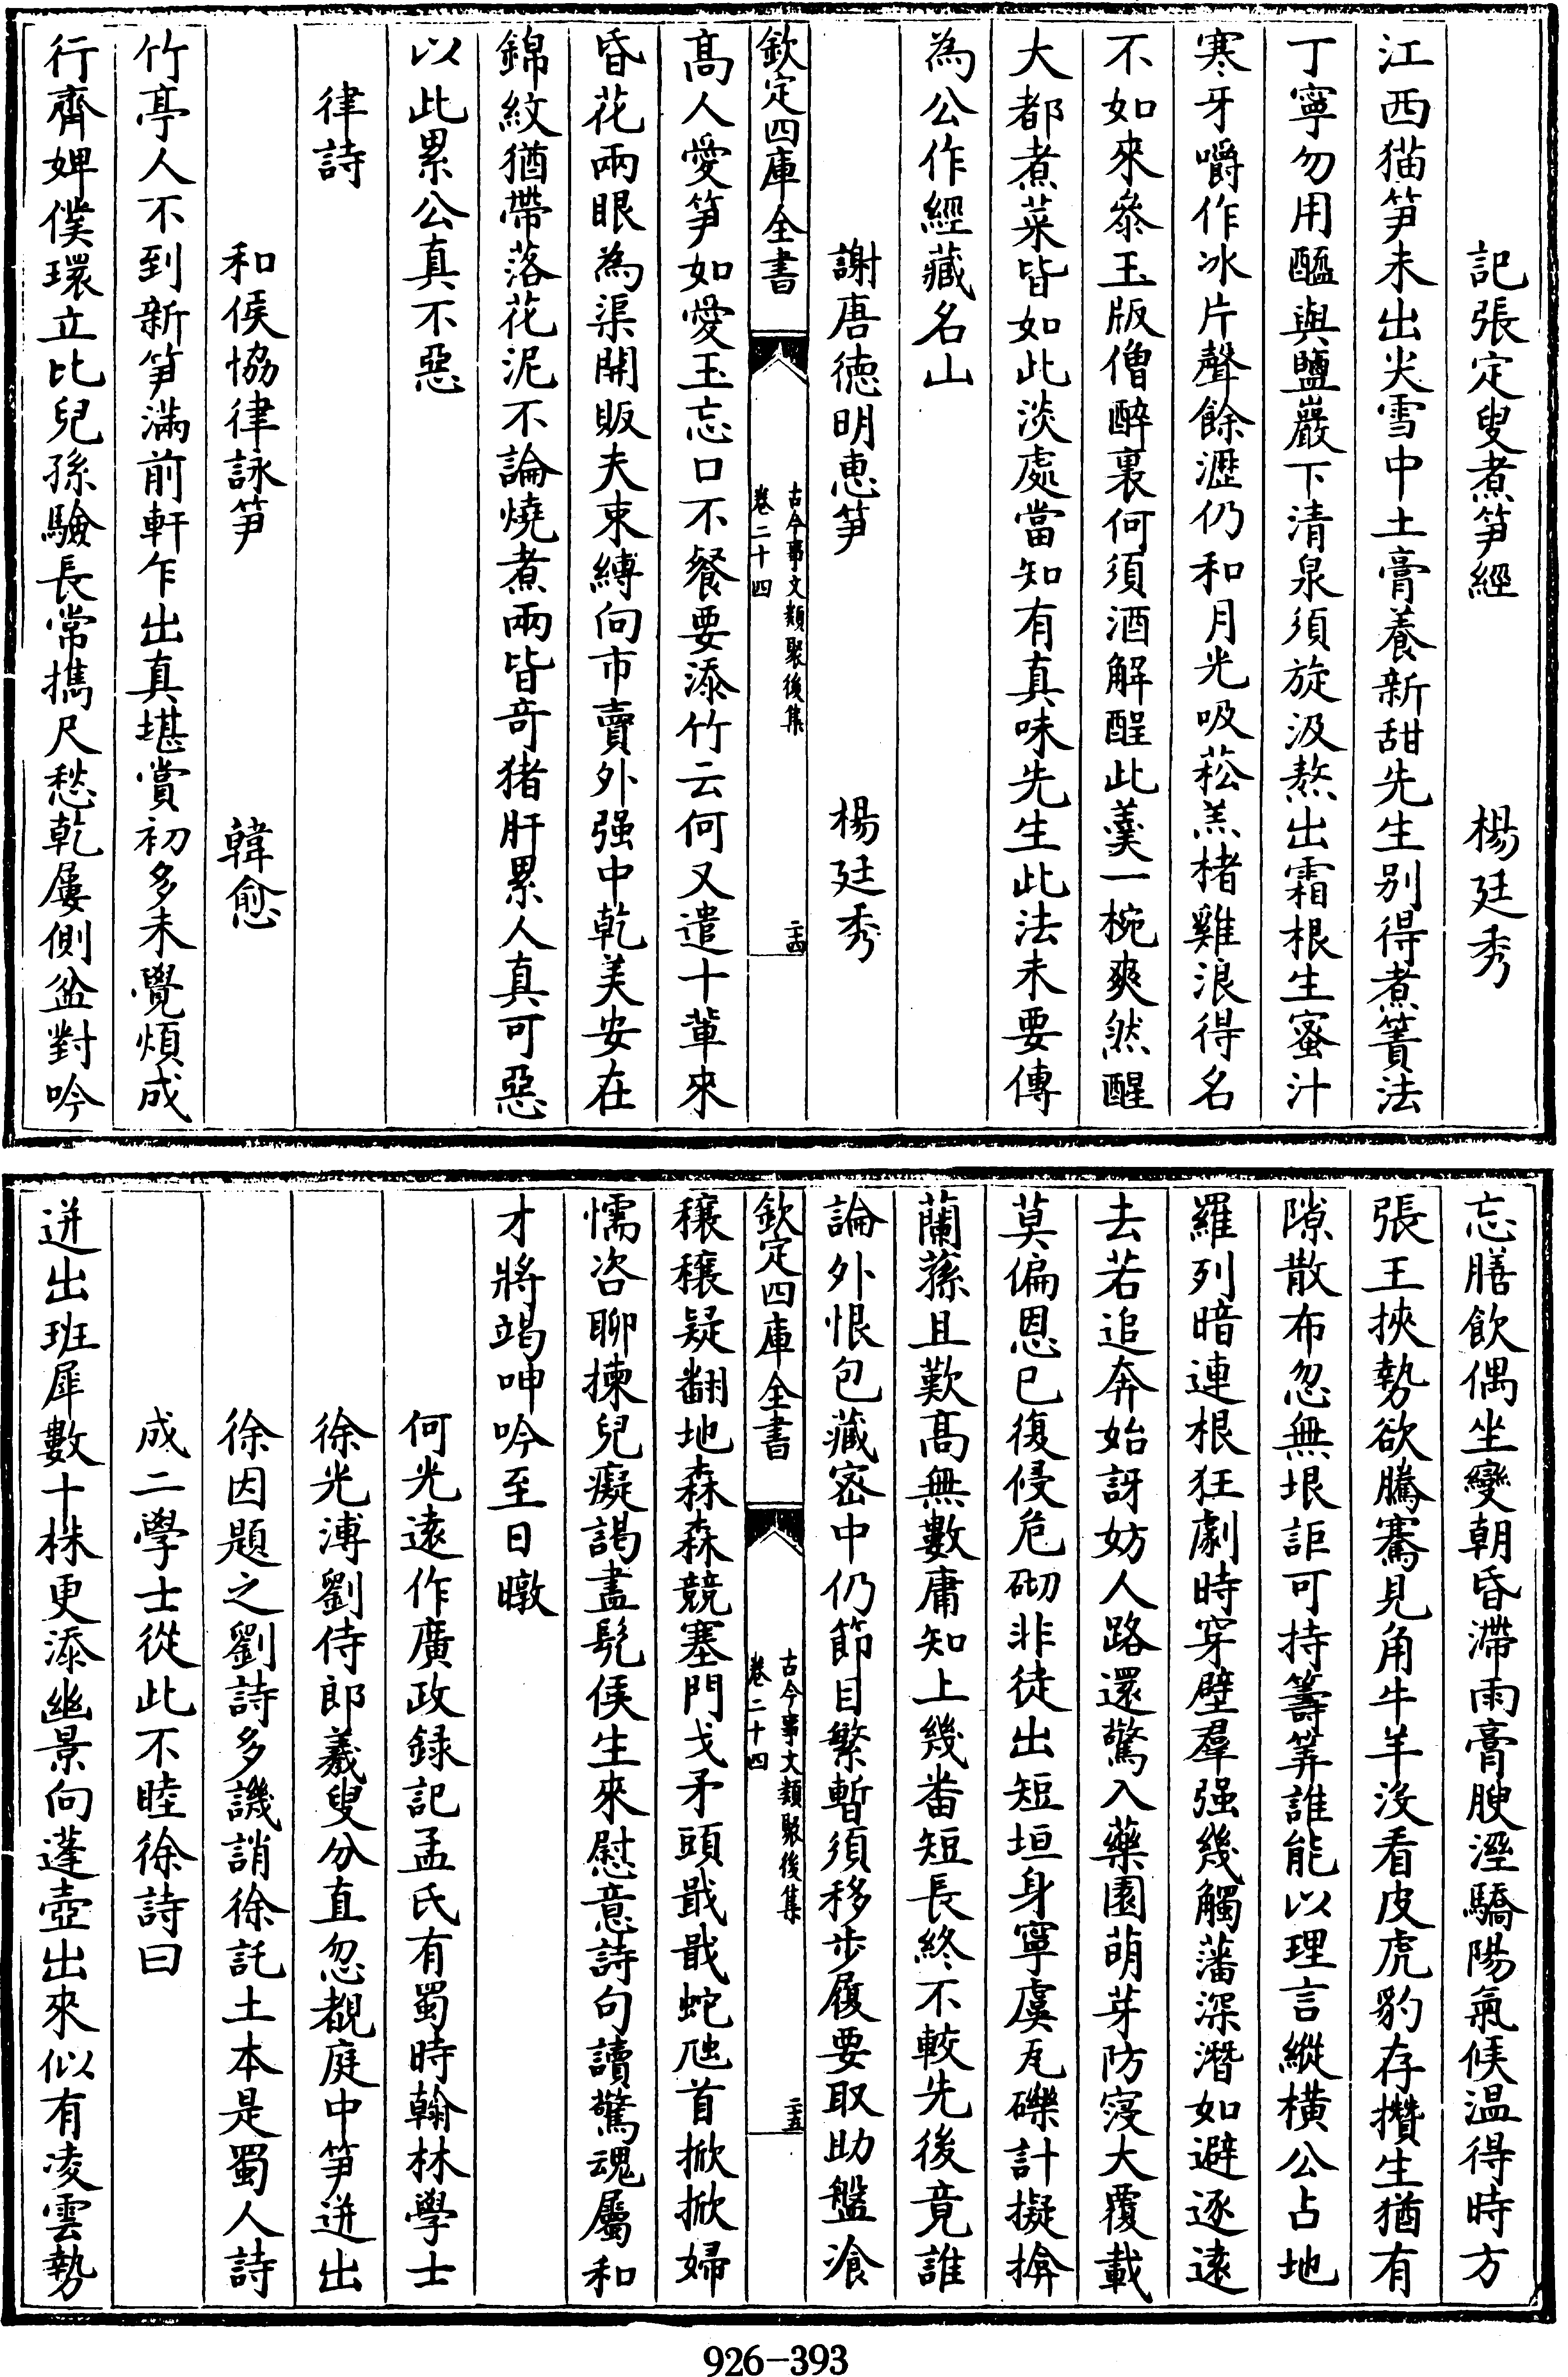 記張定叟煮笋經　楊廷秀
江西猫笋未出尖雪中土膏養新甜先生别得煮簀法
丁寧勿用醯與鹽巖下清泉須旋汲熬出霜根生蜜汁
寒牙嚼作冰片聲餘瀝仍和月光吸菘羔楮雞浪得名
不如來叅玉版僧醉裏何須酒解酲此羮一椀爽然醒
大都煮菜皆如此淡處當知有真味先生此法未要傳
為公作經藏名山
謝唐徳明恵笋　楊廷秀
欽定四庫全書　古今事文類聚後集　卷二十四　二十四
髙人愛笋如愛玉忘口不餐要添竹云何又遣十軰來
昏花兩眼為渠開販夫束縛向市賣外强中乾美安在
錦紋猶帶落花泥不論燒煮兩皆竒猪肝累人真可惡
以此累公真不惡
律詩
和侯協律詠笋　韓愈
竹亭人不到新笋滿前軒乍出真堪賞初多未覺煩成
行齊婢僕環立比兒孫驗長常擕尺愁乾屢側盆對吟
忘膳飲偶坐變朝昏滯雨膏腴溼驕陽氣候温得時方
張王挾勢欲騰騫見角牛羊没看皮虎豹存攢生猶有
隙散布忽無垠詎可持籌筭誰能以理言縱横公占地
羅列暗連根狂劇時穿壁羣强幾觸藩深潛如避逐遠
去若追奔始訝妨人路還驚入藥園萌芽防寖大覆載
莫偏恩已復侵危砌非徒出短垣身寧虞瓦礫計擬揜
蘭蓀且歎髙無數庸知上幾畨短長終不較先後竟誰
論外恨包藏宻中仍節目繁暫須移歩履要取助盤飱
欽定四庫全書　古今事文類聚後集　卷二十四　二十五
穰穰疑翻地森森競塞門戈矛頭戢戢蛇虺首掀掀婦
懦咨聊揀兒癡謁盡髠侯生來慰意詩句讀驚魂屬和
才將竭呻吟至日暾
何光逺作廣政録記孟氏有蜀時翰林學士
徐光溥劉侍郎羲叟分直忽覩庭中笋迸出
徐因題之劉詩多譏誚徐託土本是蜀人詩
成二學士從此不睦徐詩曰
迸出班犀數十株更添幽景向蓬壺出來似有凌雲勢
926-393